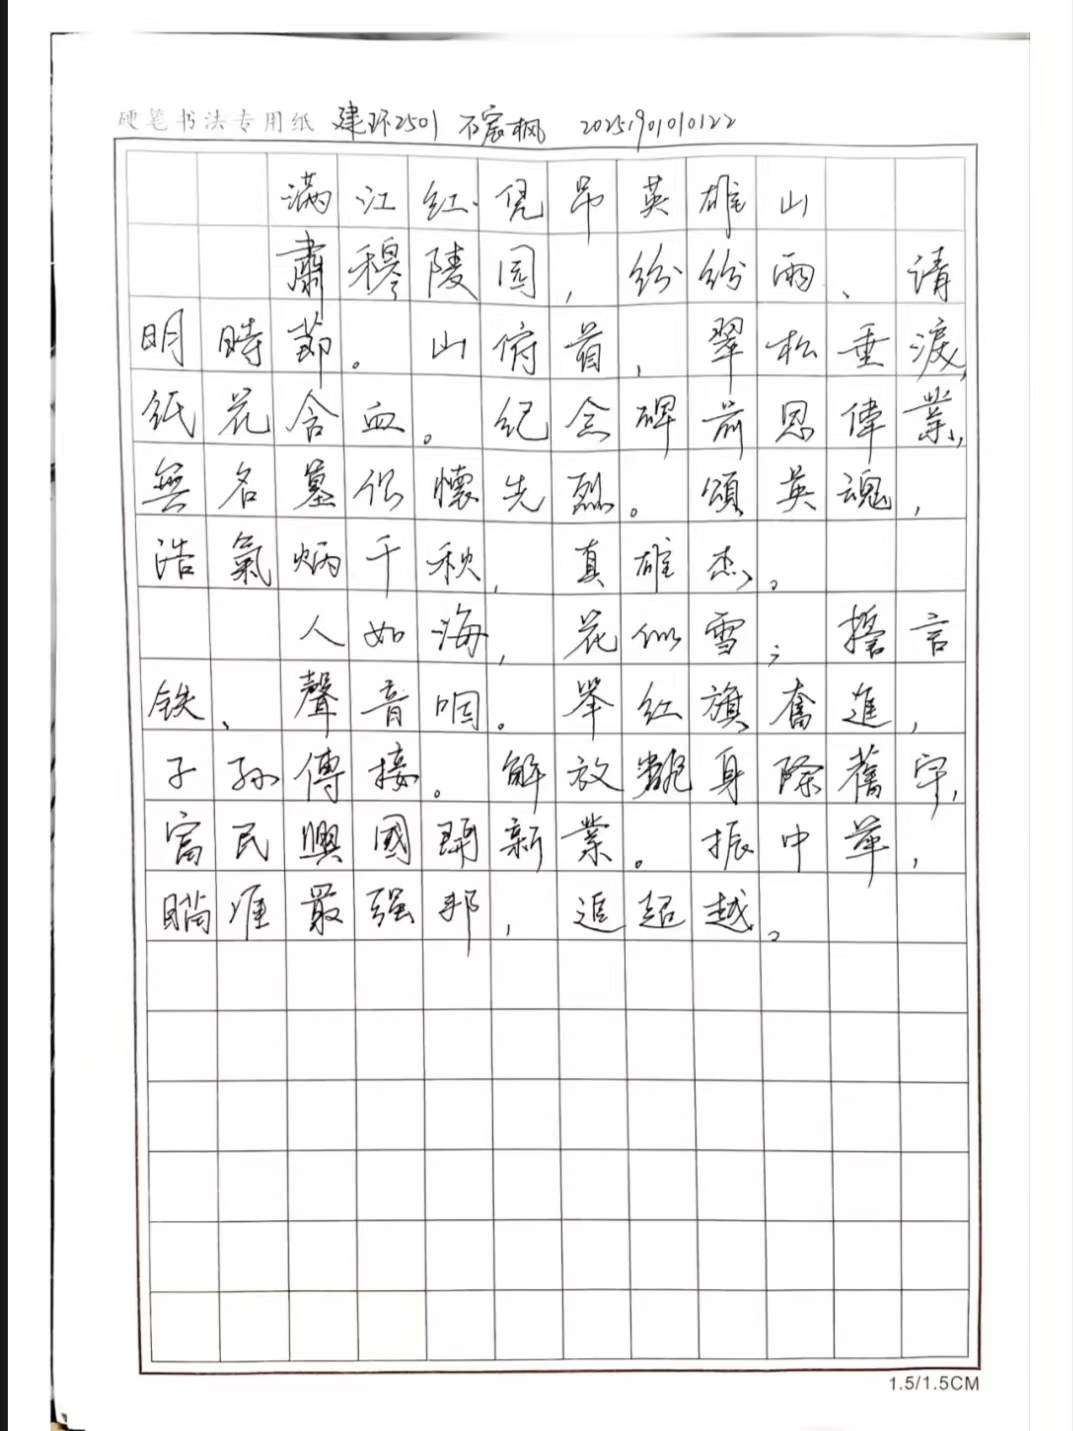 硬笔书法专用纸 建环2501 石宸枫 202519010122
满江红·凭吊英雄山
肃穆陵园，纷纷雨、请
明時節。山俯首，翠松垂淚，
纸花含血。纪念碑前思偉業，
無名墓侧懷先烈。頌英魂，
浩氣炳千秋，真雄杰。
人如海，花似雪；誓言
铁、聲音咽。举红旗奮進，
子孙傳接。解放翻身除舊宇，
富民興國開新業。振中華，
瞄准最强邦，追超越。
1.5/1.5CM